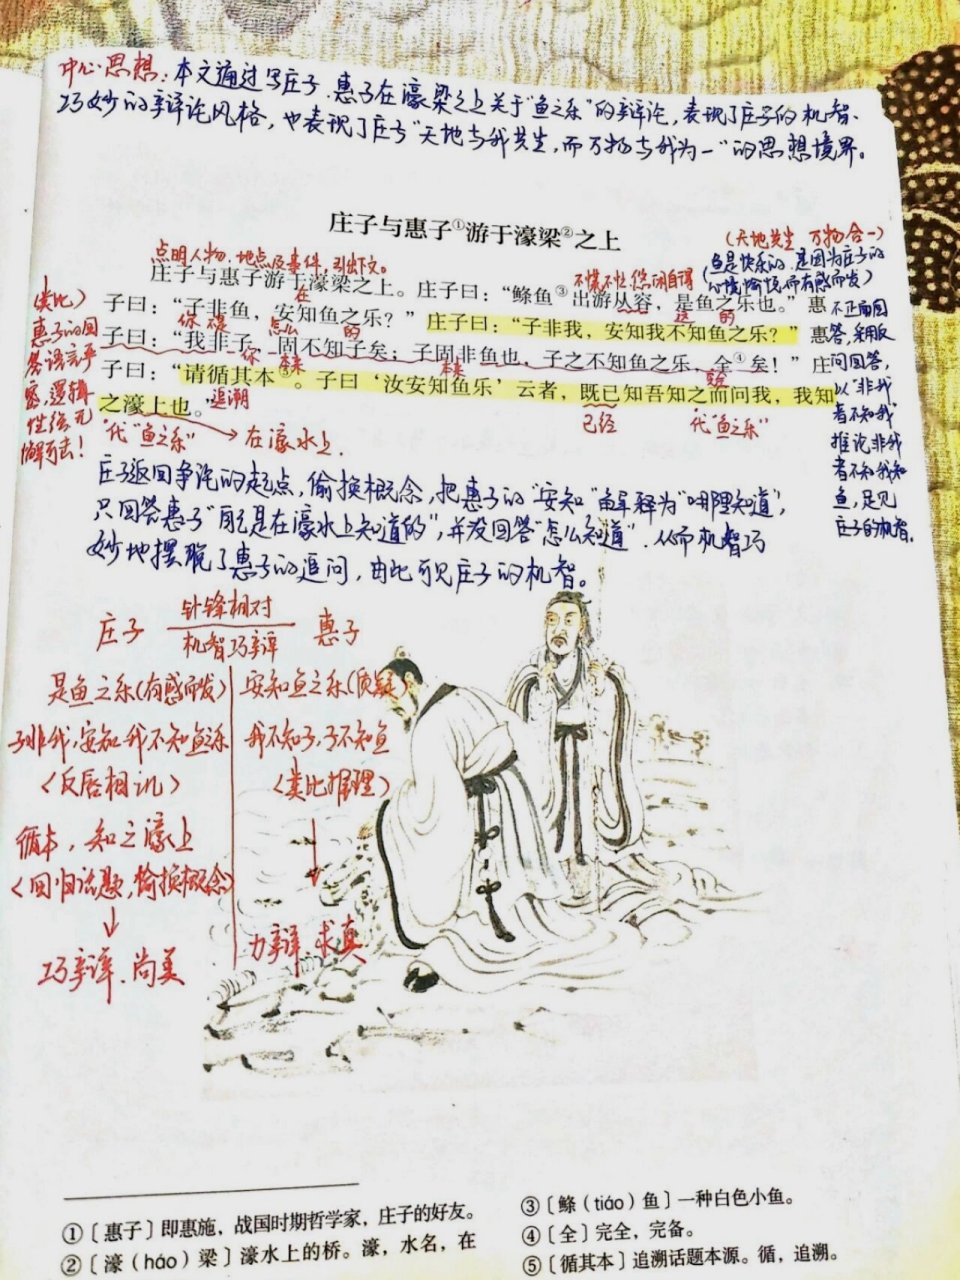 中心思想：本文通过写庄子、惠子在濠梁之上关于"鱼之乐"的辩论，表现了庄子的机智、
巧妙的辩论风格，也表现了庄子"天地与我共生，而万物与我为一"的思想境界。
庄子与惠子①游于濠梁②之上
点明人物、地点及事件，引出下文。
在
不慌不忙、悠闲自得
（天地共生 万物合一）
（鱼是快乐的，是因为庄子的
心境愉悦，而有感而发）
庄子与惠子游于濠梁之上。庄子曰："鲦鱼③出游从容，是鱼之乐也。"惠
这 的
子曰："子非鱼，安知鱼之乐？"庄子曰："子非我，安知我不知鱼之乐？"惠
你 不是 怎么 的
子曰："我非子，固不知子矣；子固非鱼也，子之不知鱼之乐，全④矣！"庄
你 本来 本来
子曰："请循其本⑤。子曰'汝安知鱼乐'云者，既已知吾知之而问我，我知
之濠上也。"
追溯
已经
代"鱼之乐"
代"鱼之乐"
在濠水上.
（类比）
惠子的回
答语言严
密，逻辑
性强，无
懈可击！
不正面回
答，采用反
问回答，
以"非我
者不知我"
推论非我
者不知我知
鱼，足见
庄子的机智。
庄子返回争论的起点，偷换概念，把惠子的"安知"解释为"哪里知道"，
只回答惠子"我是在濠水上知道的"，并没回答"怎么知道"，从而机智巧
妙地摆脱了惠子的追问，由此可见庄子的机智。
庄子 针锋相对 惠子
机智巧辩
是鱼之乐（有感而发） 安知鱼之乐（质疑）
子非我，安知我不知鱼之乐 我不知子，子不知鱼
〈反唇相讥〉 〈类比推理〉
循本，知之濠上
〈回归话题，偷换概念〉
巧辩、尚美 力辩、求真
①〔惠子〕即惠施，战国时期哲学家，庄子的好友。
②〔濠（háo）梁〕濠水上的桥。濠，水名，在
③〔鲦（tiáo）鱼〕一种白色小鱼。
④〔全〕完全，完备。
⑤〔循其本〕追溯话题本源。循，追溯。